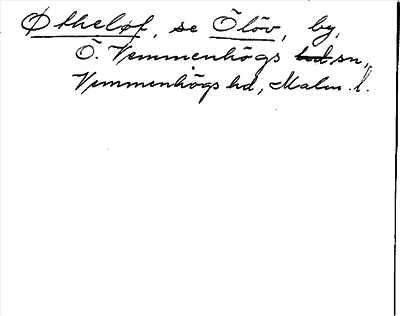 Øtheløf, se Ölöv, by,
Ö. Vemmenhögs sn,
Vemmenhögs hd, Malm. l.